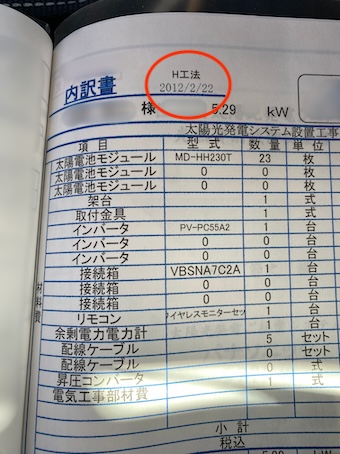 H工法
2012/2/22
内訳書
様 5.29 kW
太陽光発電システム設置工事
項 目 型 式 数 量 単 位
太陽電池モジュール MD-HH230T 23 枚
太陽電池モジュール 0 0 枚
太陽電池モジュール 0 0 枚
架台 1 式
取付金具 1 式
インバータ PV-PC55A2 1 台
インバータ 0 0 台
インバータ 0 0 台
接続箱 VBSNA7C2A 1 台
接続箱 0 0 台
接続箱 0 0 台
リモコン ワイヤレスモニターセット 1 台
余剰電力電力計 1 台
配線ケーブル 0 5 セット
配線ケーブル 0 0 セット
昇圧コンバータ 0 1 式
電気工事部材費
小 計
税込